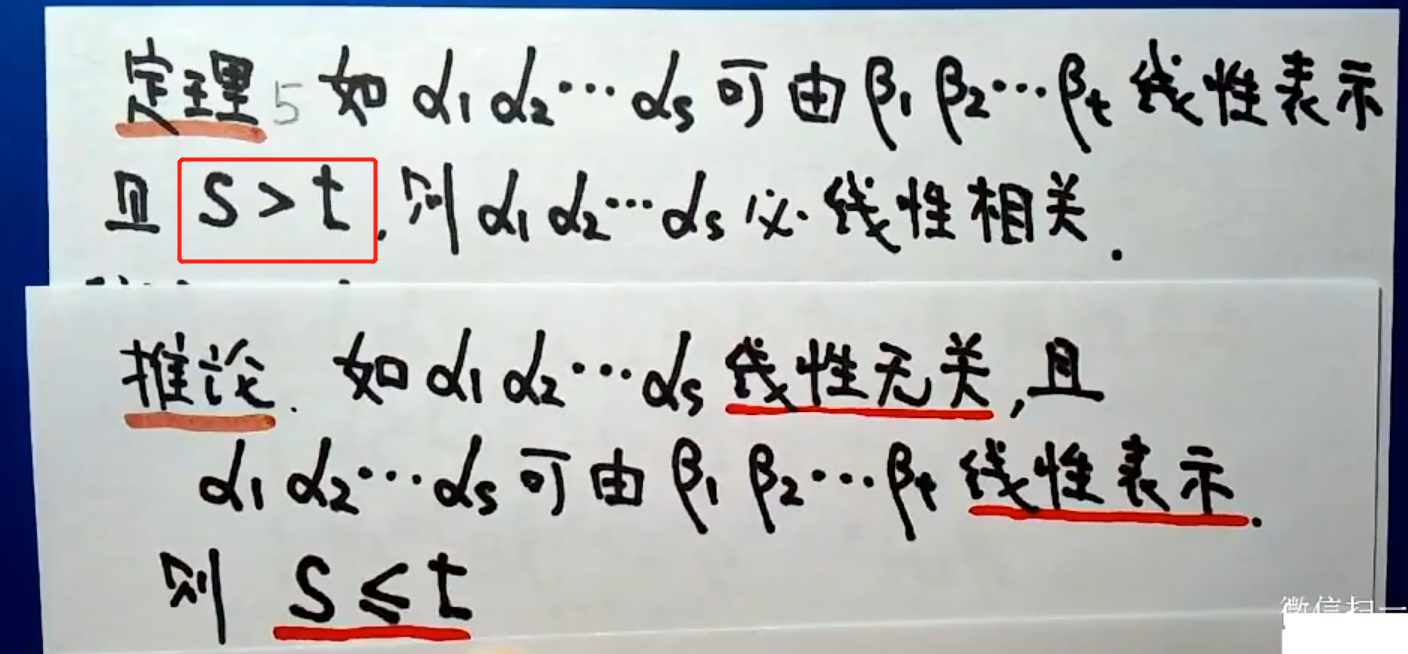 定理5 如 α₁ α₂ ⋯ αₛ 可由 β₁ β₂ ⋯ βₜ 线性表示
且 s > t, 则 α₁ α₂ ⋯ αₛ 必线性相关.
推论. 如 α₁ α₂ ⋯ αₛ 线性无关, 且
α₁ α₂ ⋯ αₛ 可由 β₁ β₂ ⋯ βₜ 线性表示.
则 s ≤ t
微信扫一